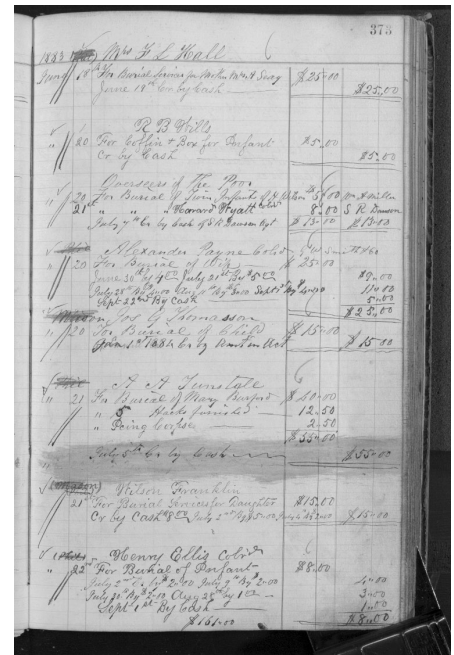 373
1883 Mrs F L Hall
June 18th For Burial Services for Mother Mrs A $25.00
June 19th Cr by Cash $25.00
R B Wills
" 20 For Coffin & Box for Infant $5.00
Cr by Cash $5.00
Overseers of The Poor
" 20 For Burial of Twin Infants of 5.00 Wm A Miller
21st " " " Howard Wyatt Cold 8.00 S R Dawson
July 7th Cr by Cash of S R Dawson Agt $13.00 $13.00
Alexander Payne Cold
" 20 For Burial of Wife $25.00
June 30th By 4.00 July 21st By $5.00 $9.00
July 28th By 4.00 By 3.00 Sept 1st By 4.00 11.00
Sept 22nd By Cash 5.00
$25.00
Jos G Thomasson
" 20 For Burial of Child $15.00
Jan 1st 1884 Cr by Rent on Act $15.00
A A Tunstale
" 21 For Burial of Mary Burford $40.00
" 5 Hacks furnished 12.50
" Icing Corpse 2.50
$55.00
July 5th Cr by Cash $55.00
Wilson Franklin
21st For Burial Services for Daughter $15.00
Cr by Cash $8.00 July 2nd By $5.00 July 4th By 2.00 $15.00
Henry Ellis Col'd
" 22nd For Burial of Infant $8.00
July 2nd Cr by $2.00 July 9th By 2.00 4.00
July 30th By 2.00 Aug 25th by 1.00 3.00
Sept 1st By Cash 1.00
$161.00 $8.00